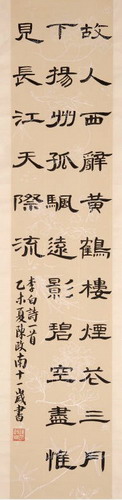 故人西辭黃鶴樓煙花三月
下揚州孤颿遠影碧空盡惟
見長江天際流
李白詩一首
乙未夏陳政南十一歲書